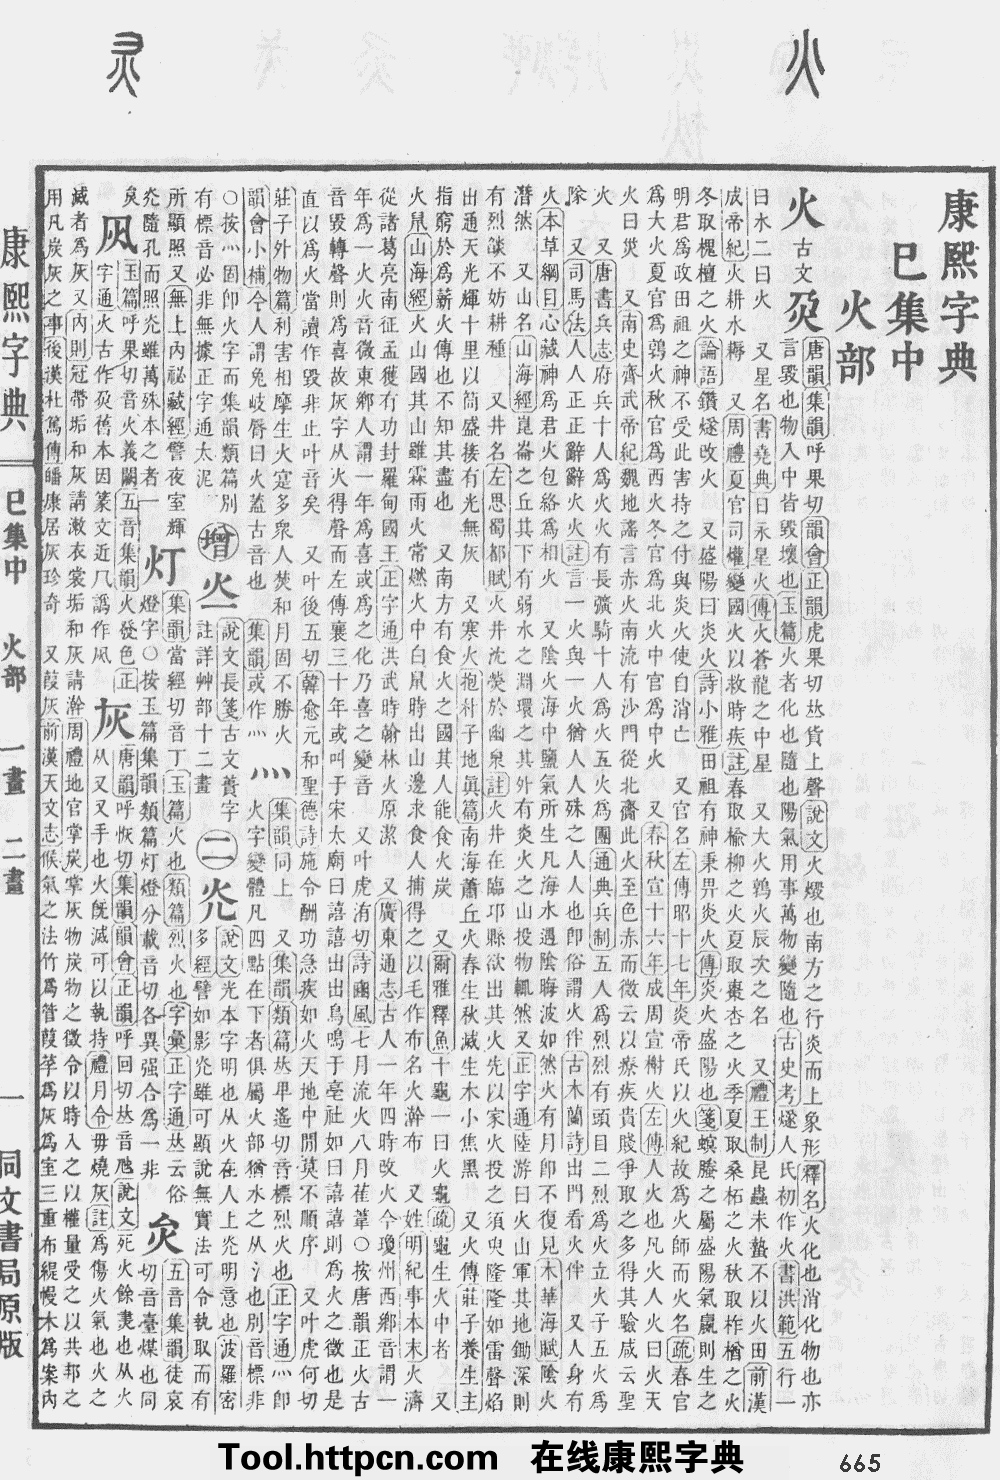 火
灵
康熙字典
巳集中
火部
火 古文 灻
唐韻集韻呼果切韻會正韻虎果切𠀤貨上聲說文火燬也南方之行炎而上象形釋名火化也消化物也亦
言毀也物入中皆毀壞也玉篇火者化也隨也陽氣用事萬物變隨也古史考燧人氏初作火書洪範五行一
曰水二曰火 又星名書堯典日永星火傳火蒼龍之中星 又大火鶉火辰次之名 又禮王制昆蟲未蟄不以火田前漢
成帝紀火耕水耨 又周禮夏官司爟變國火以救時疾註春取楡柳之火夏取棗杏之火季夏取桑柘之火秋取柞楢之火
冬取槐檀之火論語鑽燧改火 又盛陽曰炎火詩小雅田祖有神秉畀炎火傳炎火盛陽也箋螟螣之屬盛陽氣嬴則生之
明君爲政田祖之神不受此害持之付與炎火使自消亡 又官名左傳昭十七年炎帝氏以火紀故爲火師而火名疏春官
爲大火夏官爲鶉火秋官爲西火冬官爲北火中官爲中火 又春秋宣十六年成周宣榭火左傳人火也凡火人火曰火天
火曰災 又南史齊武帝紀魏地謠言赤火南流有沙門從北齎此火至色赤而微云以療疾貴賤爭取之多得其驗咸云聖
火 又唐書兵志府兵十人爲火火有長彍騎十人爲火五火爲團通典兵制五人爲烈烈有頭目二烈爲火立火子五火爲
隊 又司馬法人人正正辭辭火火註言一火與一火猶人人殊之人人也卽俗謂火伴古木蘭詩出門看火伴 又人身有
火本草綱目心藏神爲君火包絡爲相火 又陰火海中鹽氣所生凡海水遇陰晦波如然火有月卽不復見木華海賦陰火
潛然 又山名山海經崑崙之丘其下有弱水之淵環之其外有炎火之山投物輒然又正字通陸游曰火山軍其地鋤深則
有烈燄不妨耕種 又井名左思蜀都賦火井沈熒於幽泉註火井在臨邛縣欲出其火先以家火投之須臾隆隆如雷聲焰
出通天光輝十里以筒盛接有光無灰 又寒火抱朴子地眞篇南海蕭丘火春生秋滅生木小焦黑 又火傳莊子養生主
指窮於爲薪火傳也不知其盡也 又南方有食火之國其人能食火炭 又爾雅釋魚十龜一曰火龜疏龜生火中者 又
火鼠山海經火山國其山雖霖雨火常燃火中白鼠時出山邊求食人捕得之以毛作布名火澣布 又姓明紀事本末火濟
從諸葛亮南征孟獲有功封羅甸國王正字通洪武時翰林火原潔 又廣東通志古人一年四時改火今瓊州西鄉音謂一
年爲一火火音微東鄉人謂一年爲喜或爲之化乃喜之變音 又叶虎洧切詩豳風七月流火八月萑葦○按唐韻正火古
音毀轉聲則爲喜故灰字从火得聲而左傳襄三十年或叫于宋太廟曰譆譆出出鳥鳴于亳社如曰譆譆則爲火之徵也是
直以爲火當讀作毀非止叶音矣 又叶後五切韓愈元和聖德詩施令酬功急疾如火天地中閒莫不順序 又叶虎何切
莊子外物篇利害相摩生火寔多衆人焚和月固不勝火
韻會小補今人謂兔岐唇曰火蓋古音也 集韻或作灬
灬
集韻同上 又集韻類篇𠀤𤰞遙切音標烈火也正字通灬卽
火字變體凡四點在下者俱屬火部猶水之从氵也別音標非
○按灬固卽火字而集韻類篇別
有標音必非無據正字通太泥
增
說文長箋古文蕢字
註詳艸部十二畫
二 灮
說文光本字明也从火在人上灮明意也波羅密
多經譬如影灮雖可顯說無實法可令執取而有
所顯照又無上內祕藏經譬夜室輝
灮隨孔而照灮雖萬殊本之者一
灯
集韻當經切音丁玉篇火也類篇烈火也字彙正字通𠀤云俗
燈字○按玉篇集韻類篇灯燈分載音切各異强合爲一非
五音集韻徒哀
切音臺煤也同
炱
凨
玉篇呼果切音火義闕五音集韻火發色正
字通火古作灻舊本因篆文近几譌作凨
灰
唐韻呼恢切集韻韻會正韻呼回切𠀤音虺說文死火餘㶳也从火
从又又手也火旣滅可以執持禮月令毋燒灰註爲傷火氣也火之
滅者爲灰又內則冠帶垢和灰請漱衣裳垢和灰請澣周禮地官掌炭掌灰物炭物之徵令以時入之以權量受之以共邦之
用凡炭灰之事後漢杜篤傳皤康居灰珍奇 又葭灰前漢天文志候氣之法竹爲管葭莩爲灰爲室三重布緹幔木爲案內
康熙字典 巳集中 火部 一畫 二畫 一 同文書局原版
Tool.httpcn.com 在线康熙字典 665